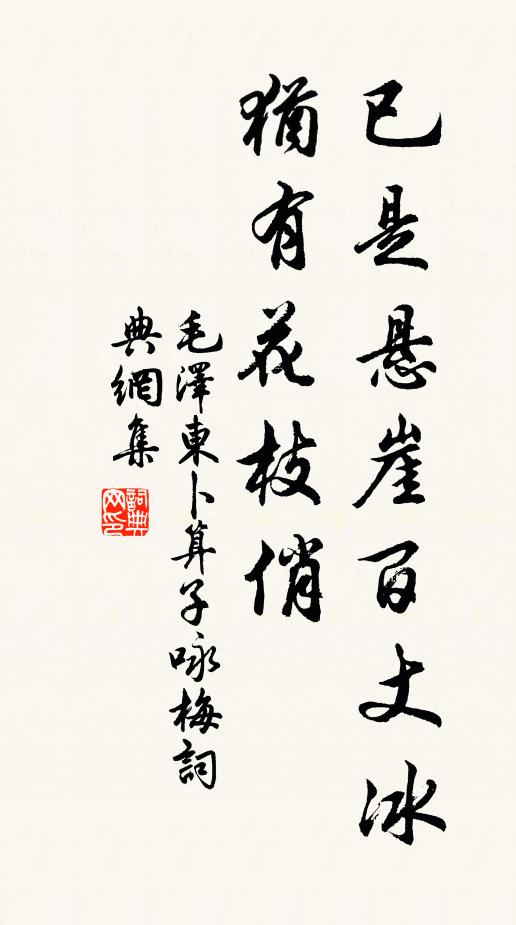 已是悬崖百丈冰
猶有花枝俏
毛澤東卜算子咏梅詞
典網集
詞典网印